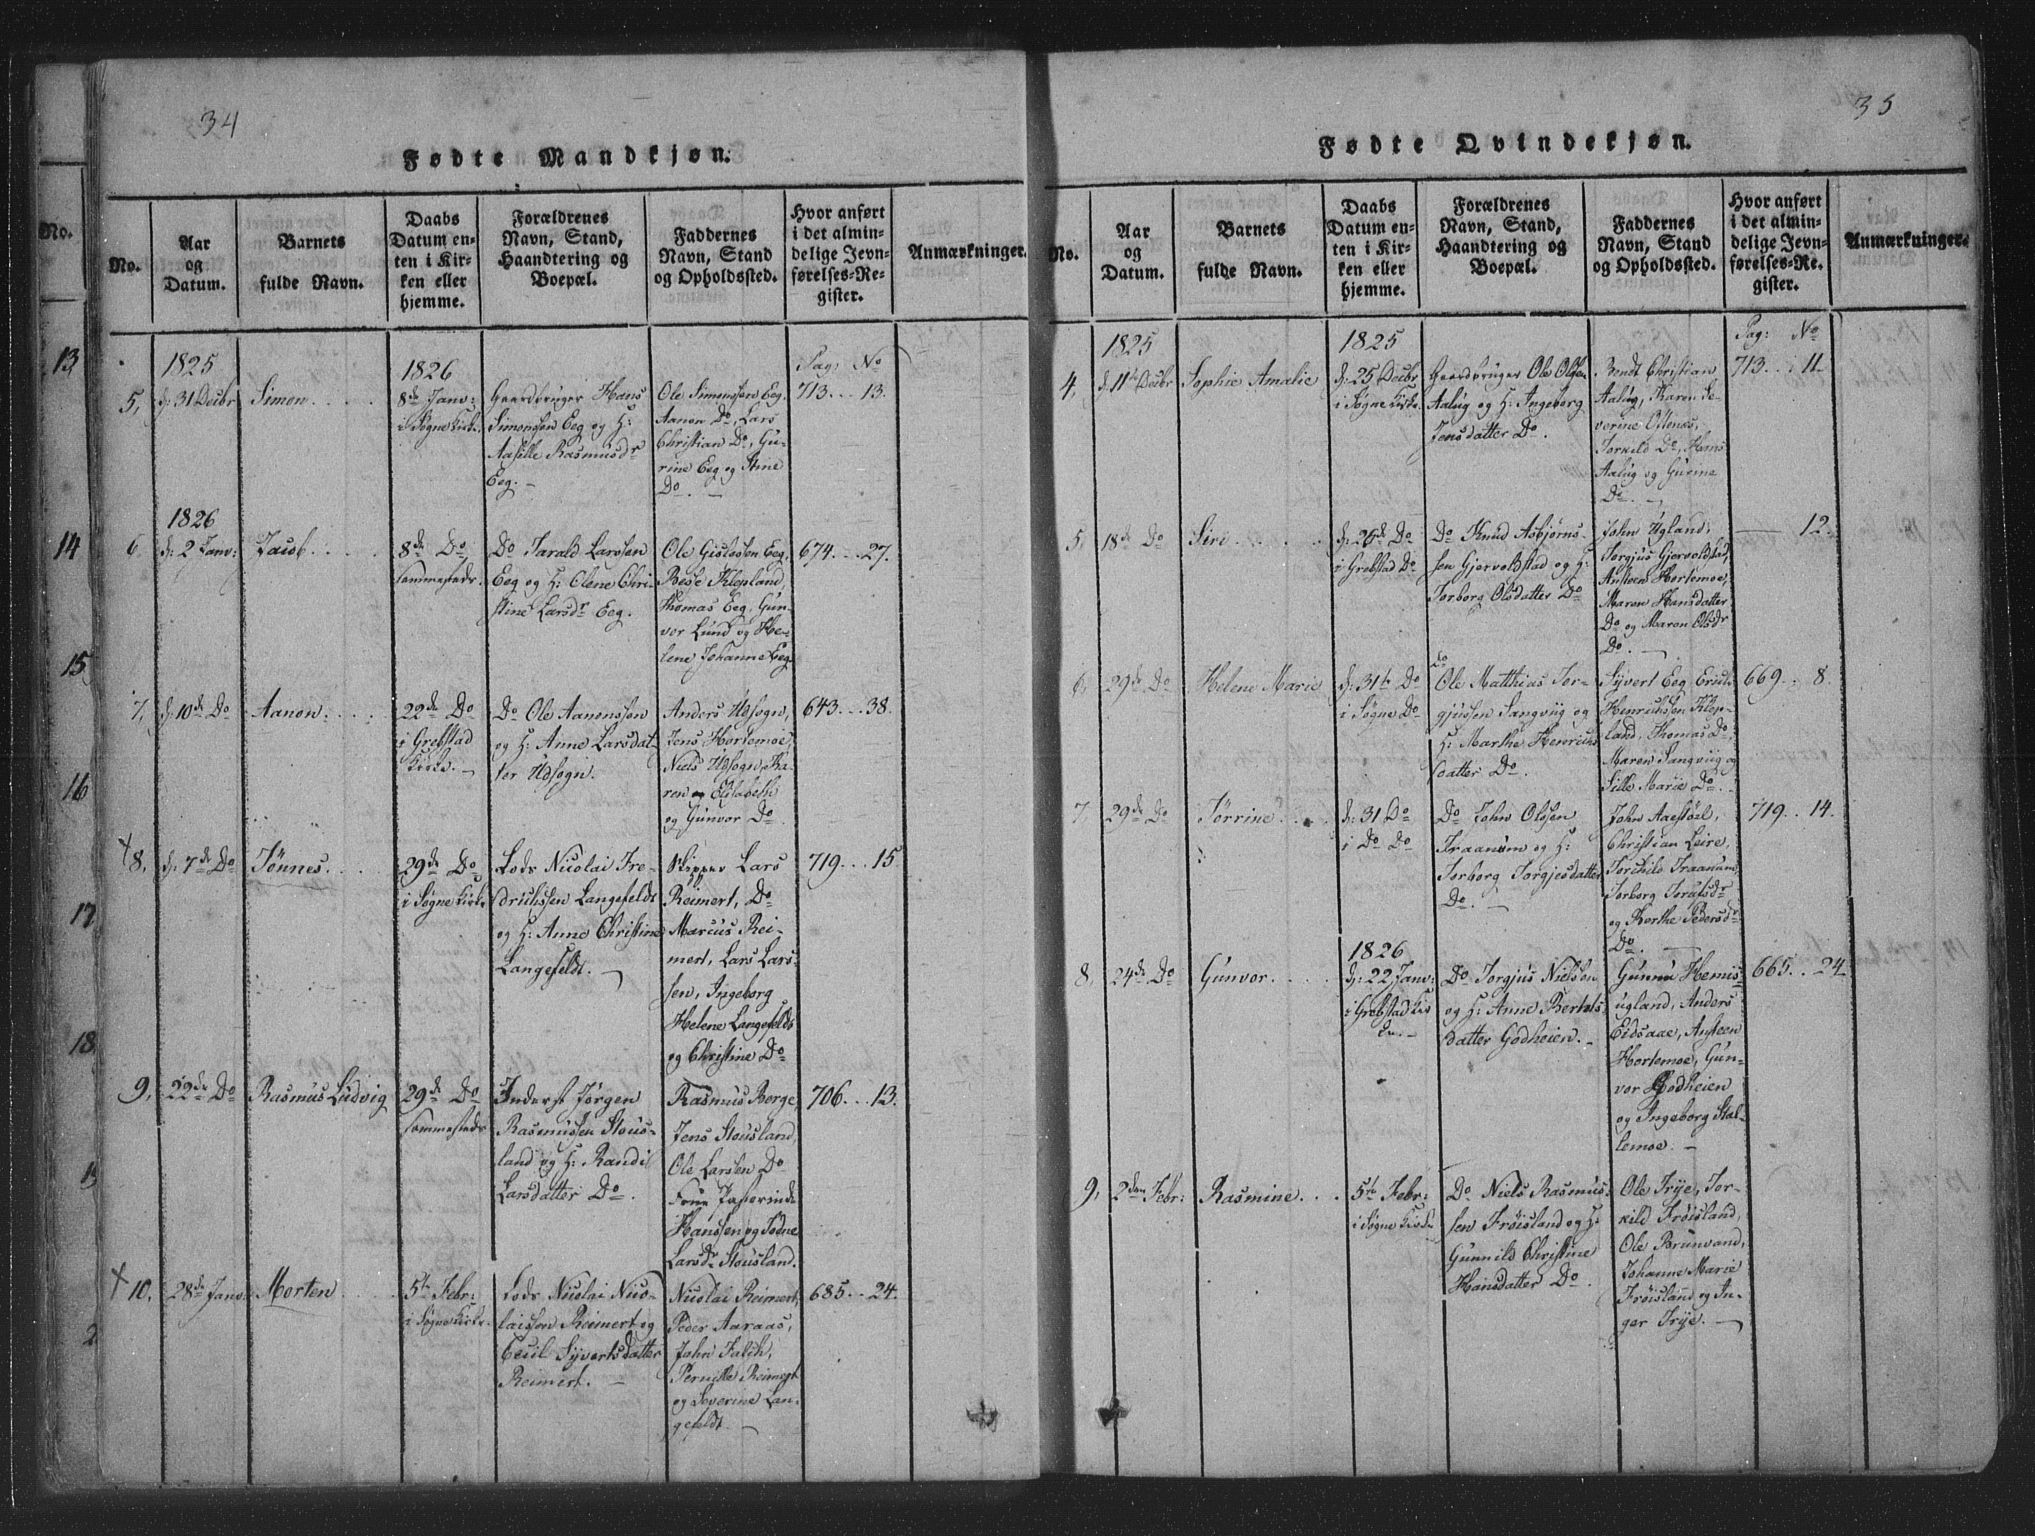 34
Fødte Mandkjøn.
No.
Aar
og
Datum.
Barnets
fulde Navn.
Daabs
Datum en-
ten i Kir-
ken eller
hjemme.
Forældrenes
Navn, Stand,
Haandtering og
Boepæl.
Faddernes
Navn, Stand
og Opholdssted.
Hvor anført
i det almin-
delige Jevn-
førelses-Re-
gister.
Anmærkninger.
1825
5, d: 31 Decbr
Simon
1826
8de Janv:
i Søgne Kirke
Gaardbruger Hans
Simonsen Eeg og H:
Rasmusdr
Eeg. —
Ole Simonssen Eeg,
Aanon Do, Lars
Christian Do, Gu-
rine Eeg og Anne
Do. —
Pag: No
713 . . . 13.
1826
6, d: 2 Janv:
Jacob
8de Do
sammesteds.
Do Tarald Larssen
Eeg og H: Olene Chri-
stine Larsdr Eeg.
Ole Gislessen Eeg,
Klepland,
Thomas Eeg, Gun-
vor Lund og He-
lene Johanne Eeg.
674 . . . 27.
7, d: 10de Do
Aanon
22de Do
i Grebstad
Kirke. —
Do Ole Aanonssen
og H: Anne Larsdat-
ter Udsogn.
Anders Udsogn,
Jens Hortemoe,
Niels Udsogn, Ka-
ren og Elisabeth
og Gunvor Do
643 . . . 38.
+ 8, d: 7de Do
Tønnes
29de Do
i Søgne Kirke
Lods Nicolai Fre-
drichssen Langefeldt
og H: Anne Christine
Langefeldt. —
Skipper Lars
Reimert, Do
Marcus Rei-
mert, Lars Lars-
sen, Ingeborg
Helene Langefeldt
og Christine Do
719 . . . 15
9, 22de Do
Rasmus Ludvig
29de Do
sammesteds
Inderst Jørgen
Rasmussen Stous-
land og H: Randi
Larsdatter Do.
Rasmus Berge,
Jens Stousland,
Ole Larssen Do
Hanssen og
Larsdr Stousland.
706 . . . 13.
+ 10, 28de Janv:
Morten
5te Febr:
i Søgne Kirke.
Lods Nicolai Nico-
laissen Reimert og
Cecil Syvertsdatter
Reimert. —
Nicolai Reimert,
Peder Aaraas,
John Falch,
Pernille Reimert
og Severine Lan-
gefeldt. —
685 . . 24.
13
14
15
16
17
18
2
35
Fødte Qvindekjøn.
No.
Aar
og
Datum.
Barnets
fulde Navn.
Daabs
Datum en-
ten i Kir-
ken eller
hjemme.
Forældrenes
Navn, Stand,
Haandtering og
Boepæl.
Faddernes
Navn, Stand
og Opholdssted.
Hvor anført
i det almin-
delige Jevn-
førelses-Re-
gister.
Anmærkninger.
1825
4, d: 11te Decbr
Sophie Amalie
1825
d: 25 Decbr
i Søgne Kirke.
Gaardbruger Ole Olsen
Aalug og H: Ingeborg
Jensdatter Do.
Bendt Christian
Aalug, Karen Se-
verine Ollenæs,
Torkild Do, Hans
Aalug og Gurine
Do. —
Pag: No
713 . . . 11.
5, 18de Do
Siri
d: 26de Do
i Grebstad Do
Do Knud Asbjørns-
sen Gjervoldstad og H:
Torborg Olsdatter Do
John Ugland,
Torgjus Gjervoldstad,
Austeen Hortemoe,
Maren Hansdatter
Do og Maren Olsdr
Do. —
— 12.
6, 29de Do
Helene Marie
d: 31te Do
i Søgne Do
Do
Ole Matthias Tor-
gjussen Langviig og
H: Marthe Henrichs
datter Do.
Syvert Eeg,
Henrichssen Klep-
land, Thomas Do,
Maren Langviig og
Sille Marie Do.
669 . . 8.
7, 29de Do
Torrine
d: 31 Do
i Do Do
Do John Olssen
Traanum og H:
Torborg Torgjesdatter
Do. —
John Aaestøl,
Christian Leire,
Torchild Traanum,
Torborg
og Berthe Pedersdr
Do. —
719 . . 14.
8, 24de Do
Gunvor
1826
d: 22 Janv:
i Grebstad Kir
ke. —
Do Torgjus Nielssen
og H: Anne Bertels-
datter Godheien. —
ugland, Anders
Eidsaae, Austeen
Hortemoe, Gun-
vor Godheien
og Ingeborg Stal-
lemoe. —
665 . . 24
9, 2den Febr:
Rasmine
5te Febr:
i Søgne Kirke
Do Niels Rasmus-
sen Frøisland og H:
Gunnild Christine
Hansdatter Do.
Ole Trye, Tor-
kild Frøisland,
Ole Brunvand,
Johanne Marie
Frøisland og In-
ger Trye. —